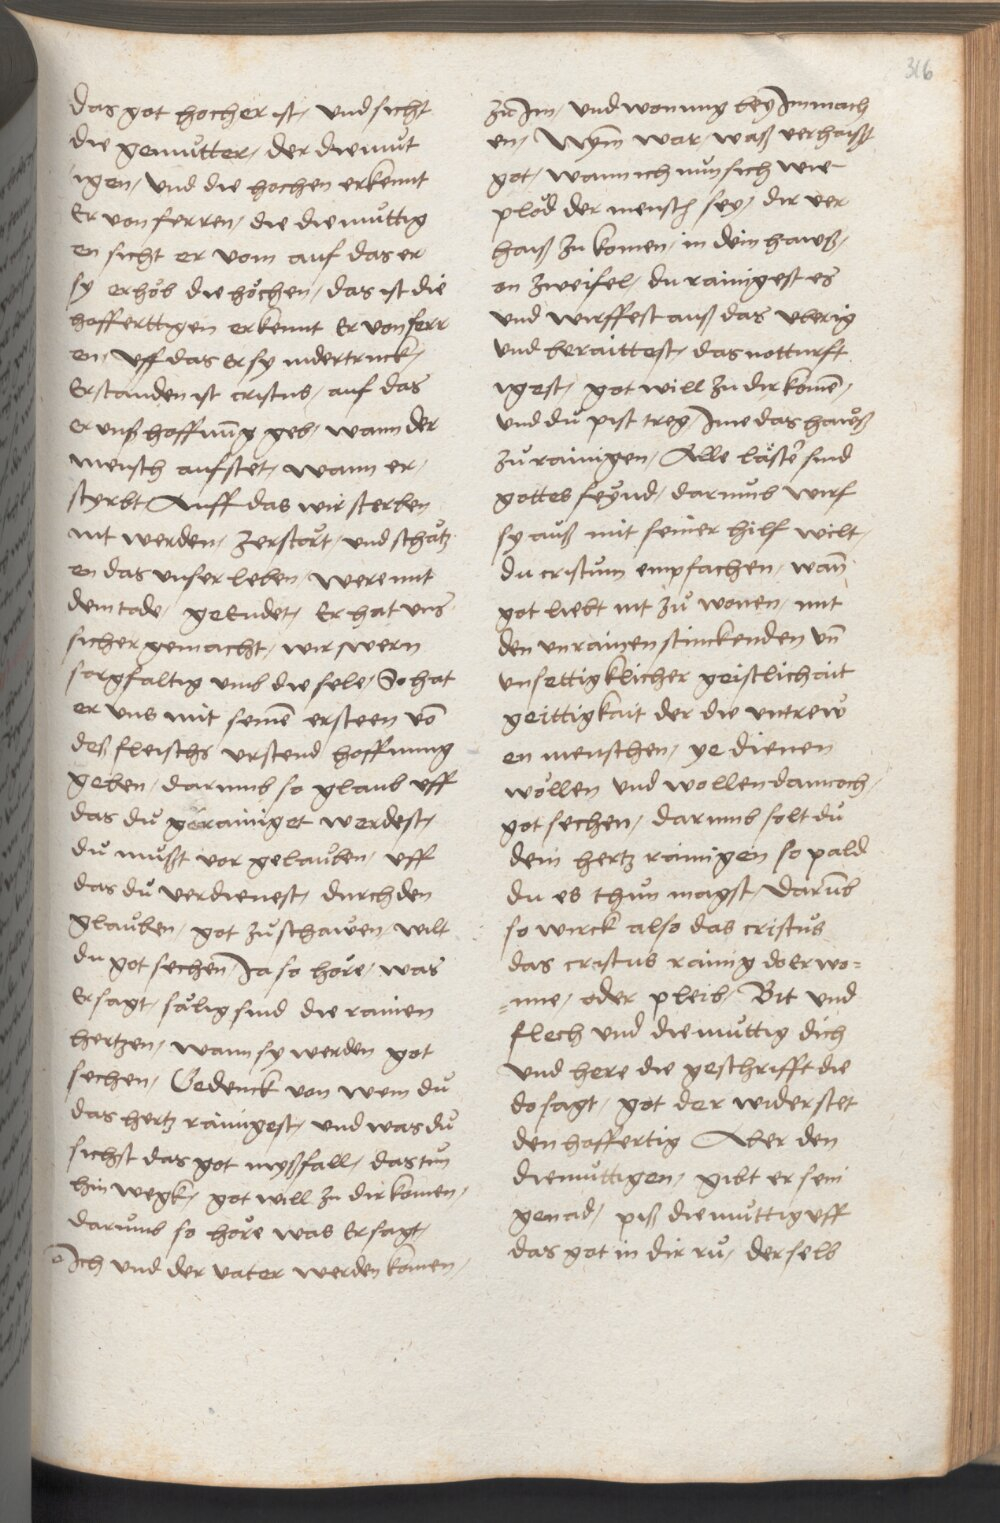 316
das got hocher ist, und sicht
die gemutter, der diemut
igen, und die hochen erkennt
Er von ferren, die diemuttig
en sicht er vom auf das er
sy erhöb die höchen, das ist die
hofferttigen erkennt Er von ferr
en, uff das er sy nidertruck,
Erstanden ist cristus, auf das
er unß hoffnūg geb, wann der
mensch aufstet, wann er,
styrbt, Auff das wir sterben
nit werden, zerstört, und schätz
en das unser leben, were mit
dem tode, geEndet, Er hat uns
sicher gemacht, wir wern
sorgfaltig umb die sele, So hat
er uns mit seinē ersteen vō
deß fleischs urstend hoffnung
geben, darumb so glaub uff
das dú gerainiget werdest,
dú mußt vor gelauben, uff
das dú verdienest, durch den
glauben, got zú schawen, wilt
du got sechen, Ja so höre, was
Er sagt, sälig sind die rainen
hertzen, wann sy werden got
sechen, Gedenck von wem dú
das hertz rainigest, und was dú
sichst das got myßfall, das tun
hin wegk, got will zu dir komen,
darumb so höre was Er sagt,
Ich und der vater werden komen,
zú Im, und wonung bey Im mach
en, Nym war, waß verhaißt
got, wann ich nun sich wie
plöd der mensch sey, dir ver
haiß zu komen, in dein hawß,
on zweifel, du rainigest es
und wirffest auß das uberig
und beraittest, das notturft
igest, got will zu dir komē,
und dú pist treg, Ime das hawß
zú rainigen, Alle läster sind
gottes feynd, darumb wirf
sy auß mit seiner hilf wilt,
du cristum empfachen, wañ
got liebt nit zú wonen, mit
den unrainen stinckenden uñ
unsettigklicher geistlichait
geittigkait der die untrew
en menschen, ye dienen
wöllen und wollen dannoch,
got sechen, darumb solt dú
dein hertz rainigen so pald
du es thún magst, darūb
so wirck also das cristus
das cristus rainig do er wo=
=ne, oder pleib, Bit und
flech und diemuttig dich
und here die geschrifft die
do sagt, got der widerstet
den hoffertig Aber den
diemuttigen, gibt er sein
genad, piß diemuttig uff
das got in dir rú, derselb